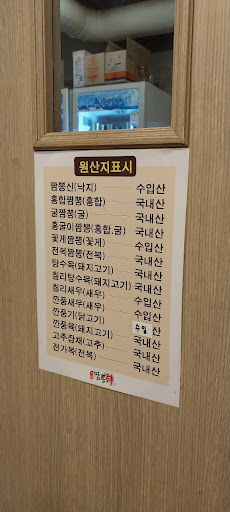 원산지표시
짬뽕신(낙지) 수입산
홍합짬뽕(홍합) 국내산
굴짬뽕(굴) 국내산
홍굴이짬뽕(홍합,굴) 국내산
꽃게짬뽕(꽃게) 수입산
전복짬뽕(전복) 국내산
탕수육(돼지고기) 국내산
칠리탕수육(돼지고기) 국내산
칠리새우(새우) 수입산
깐풍새우(새우) 수입산
깐풍기(닭고기) 수입산
깐풍육(돼지고기) 국내산
고추잡채(고추) 국내산
전가복(전복) 국내산